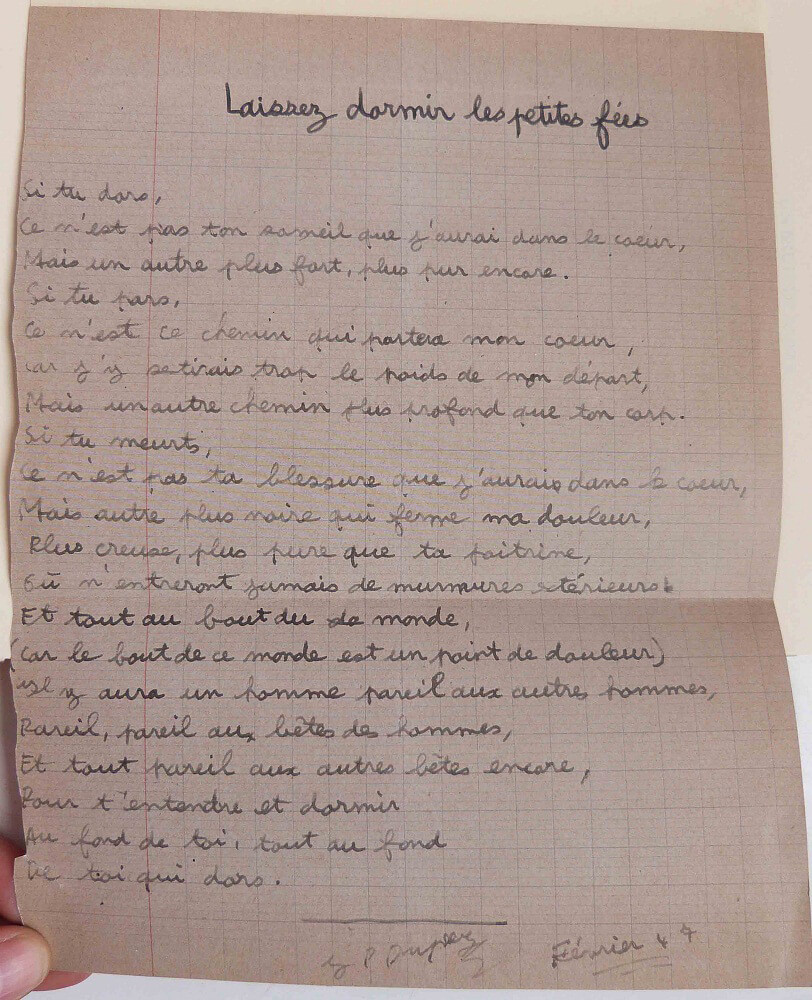 Laissez dormir les petites fées
Si tu dors,
Ce n'est pas ton someil que j'aurai dans le coeur,
Mais un autre plus fort, plus pur encore.
Si tu pars,
Ce n'est ce chemin qui portera mon coeur,
Car j'y setirais trop le poids de mon départ,
Mais un autre chemin plus profond que ton corp.
Si tu meurts,
Ce n'est pas ta blessure que j'aurais dans le coeur,
Mais autre plus noire qui ferme ma douleur,
Plus creuse, plus pure que ta poitrine,
Où n'entreront jamais de murmures extérieurs.
Et tout au bout du monde,
(Car le bout de ce monde est un point de douleur)
Il y aura un homme pareil aux autres hommes,
Pareil, pareil aux bêtes des hommes,
Et tout pareil aux autres bêtes encore,
Pour t'entendre et dormir
Au fond de toi, tout au fond
De toi qui dors.
P Duprey
Février 47